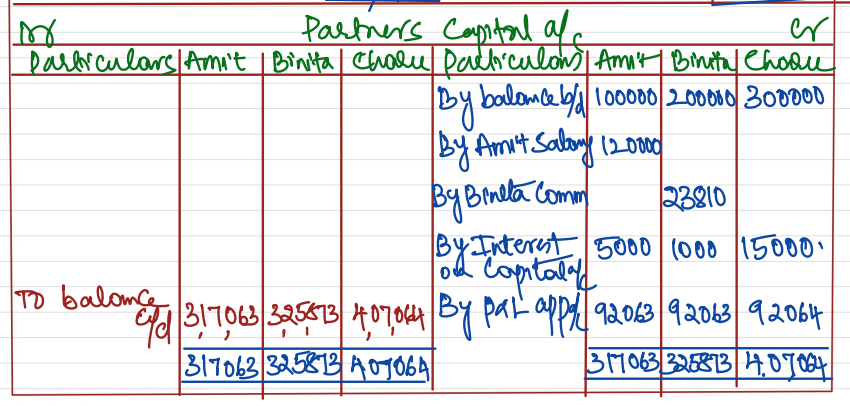 Dr Partners Capital a/c Cr
Particulars Amit Binita Charu Particulars Amit Binita Charu
By balance b/d 100000 200000 300000
By Amit Salary 120000
By Binita Comm 23810
By Interest 5000 1000 15000
on Capital a/c
To balance c/d 317063 325873 407064 By P&L app a/c 92063 92063 92064
317063 325873 407064 317063 325873 407064